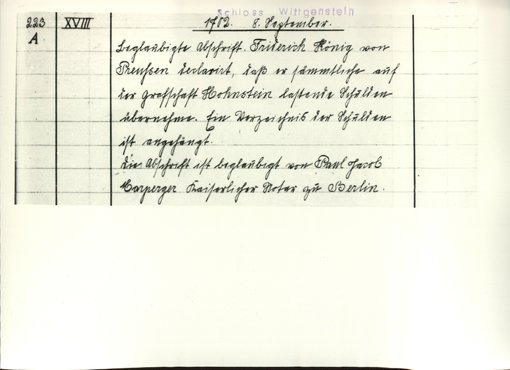 Schloss Wittgenstein
223 XVIII 1702. 8. September.
A
Beglaubigte Abschrift. Friderich König von
Preußen declarirt, daß er sämmtliche auf
der Grafschaft Hohnstein lastende Schulden
übernehme. Ein Verzeichnis der Schulden
ist angehängt.
Die Abschrift ist beglaubigt von Paul Jacob
Marperger Kaiserlicher Notar zu Berlin.